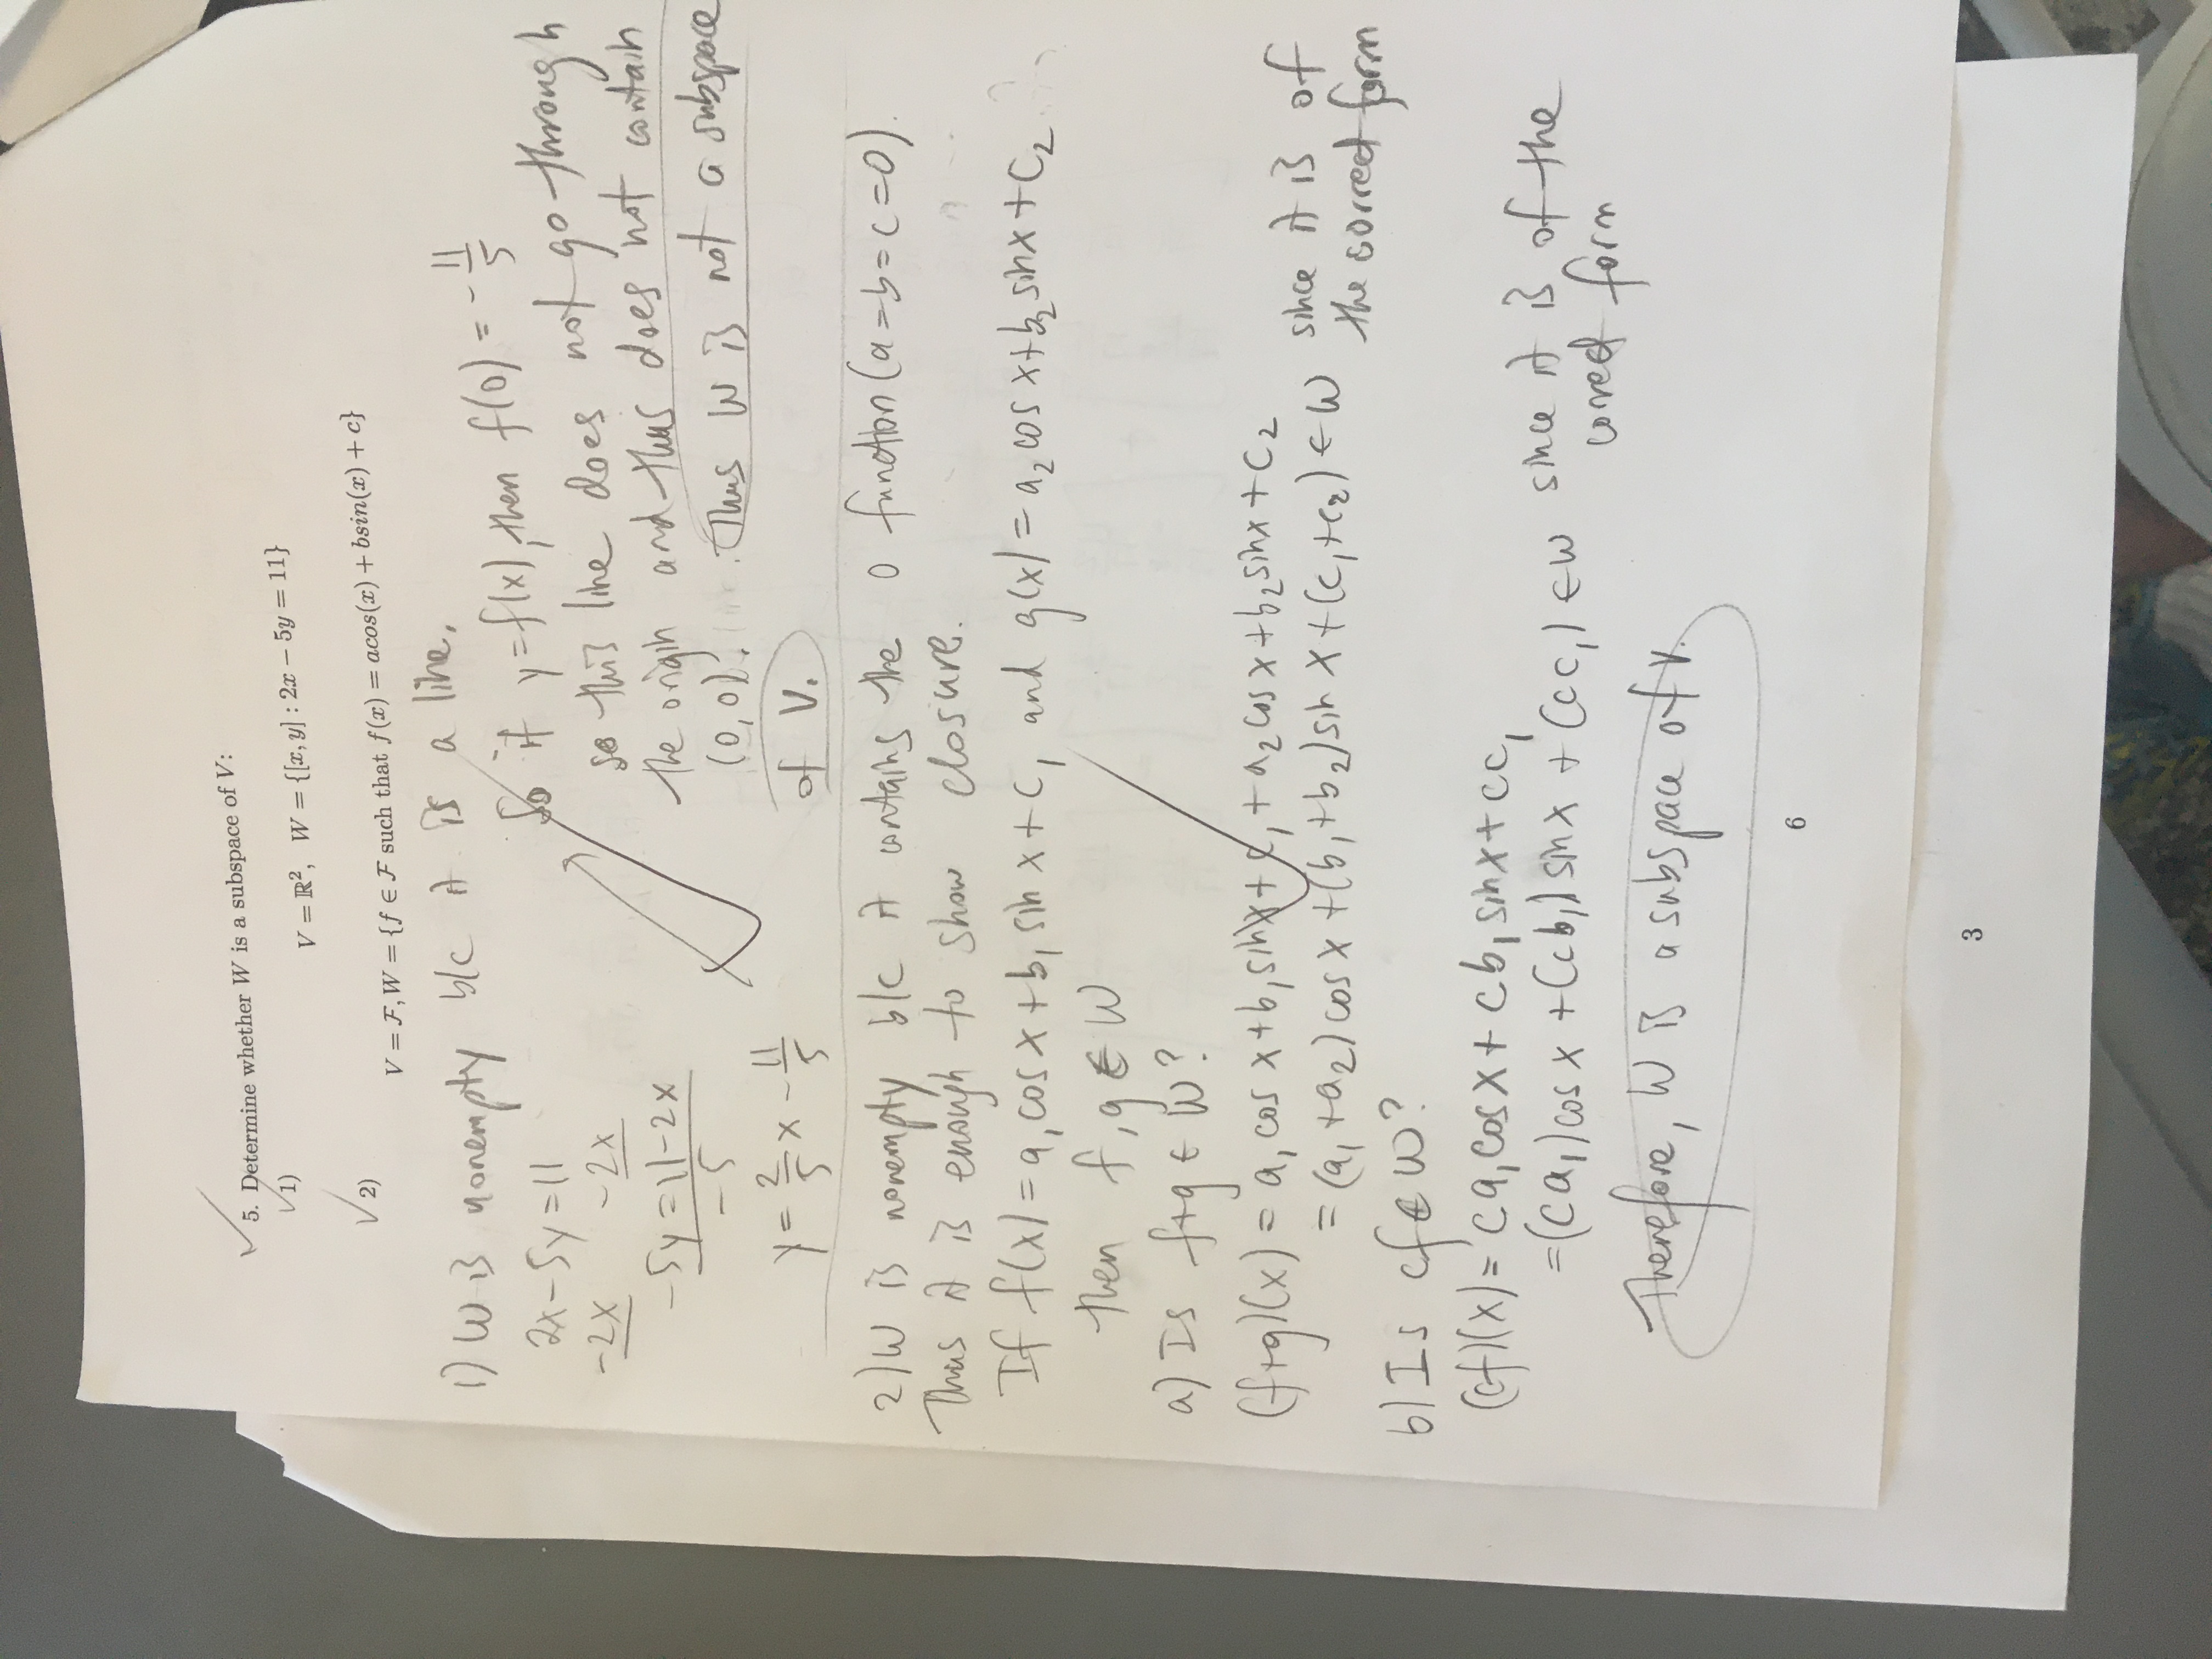 5. Determine whether W is a subspace of V:
1)
V = ℝ², W = {[x, y] : 2x − 5y = 11}
2)
V = ℱ, W = {f ∈ ℱ such that f(x) = acos(x) + bsin(x) + c}
1) W is nonempty b/c it is a line.
2x-5y=11
-2x -2x
-5y=11-2x
-5
y = 2/5 x - 11/5
So if y=f(x), then f(0) = -11/5
so this line does not go through
the origin and thus does not contain
(0,0). Thus W is not a subspace
of V.
2) W is nonempty b/c it contains the 0 function (a=b=c=0).
Thus it is enough to show closure.
If f(x) = a₁cosx + b₁ sin x + c₁ and g(x) = a₂ cos x + b₂ sinx + c₂
then f, g ∈ W
a) Is f+g ∈ W?
(f+g)(x) = a₁ cos x + b₁ sinx + c₁ + a₂ cos x + b₂ sinx + c₂
= (a₁ + a₂) cos x + (b₁ + b₂) sin x + (c₁ + c₂) ∈ W since it is of
the correct form
b) Is cf ∈ W?
(cf)(x) = ca₁cosx + cb₁ sinx + cc₁
= (ca₁)cos x + (cb₁) sinx + (cc₁) ∈ W since it is of the
correct form
Therefore, W is a subspace of V.
6
3